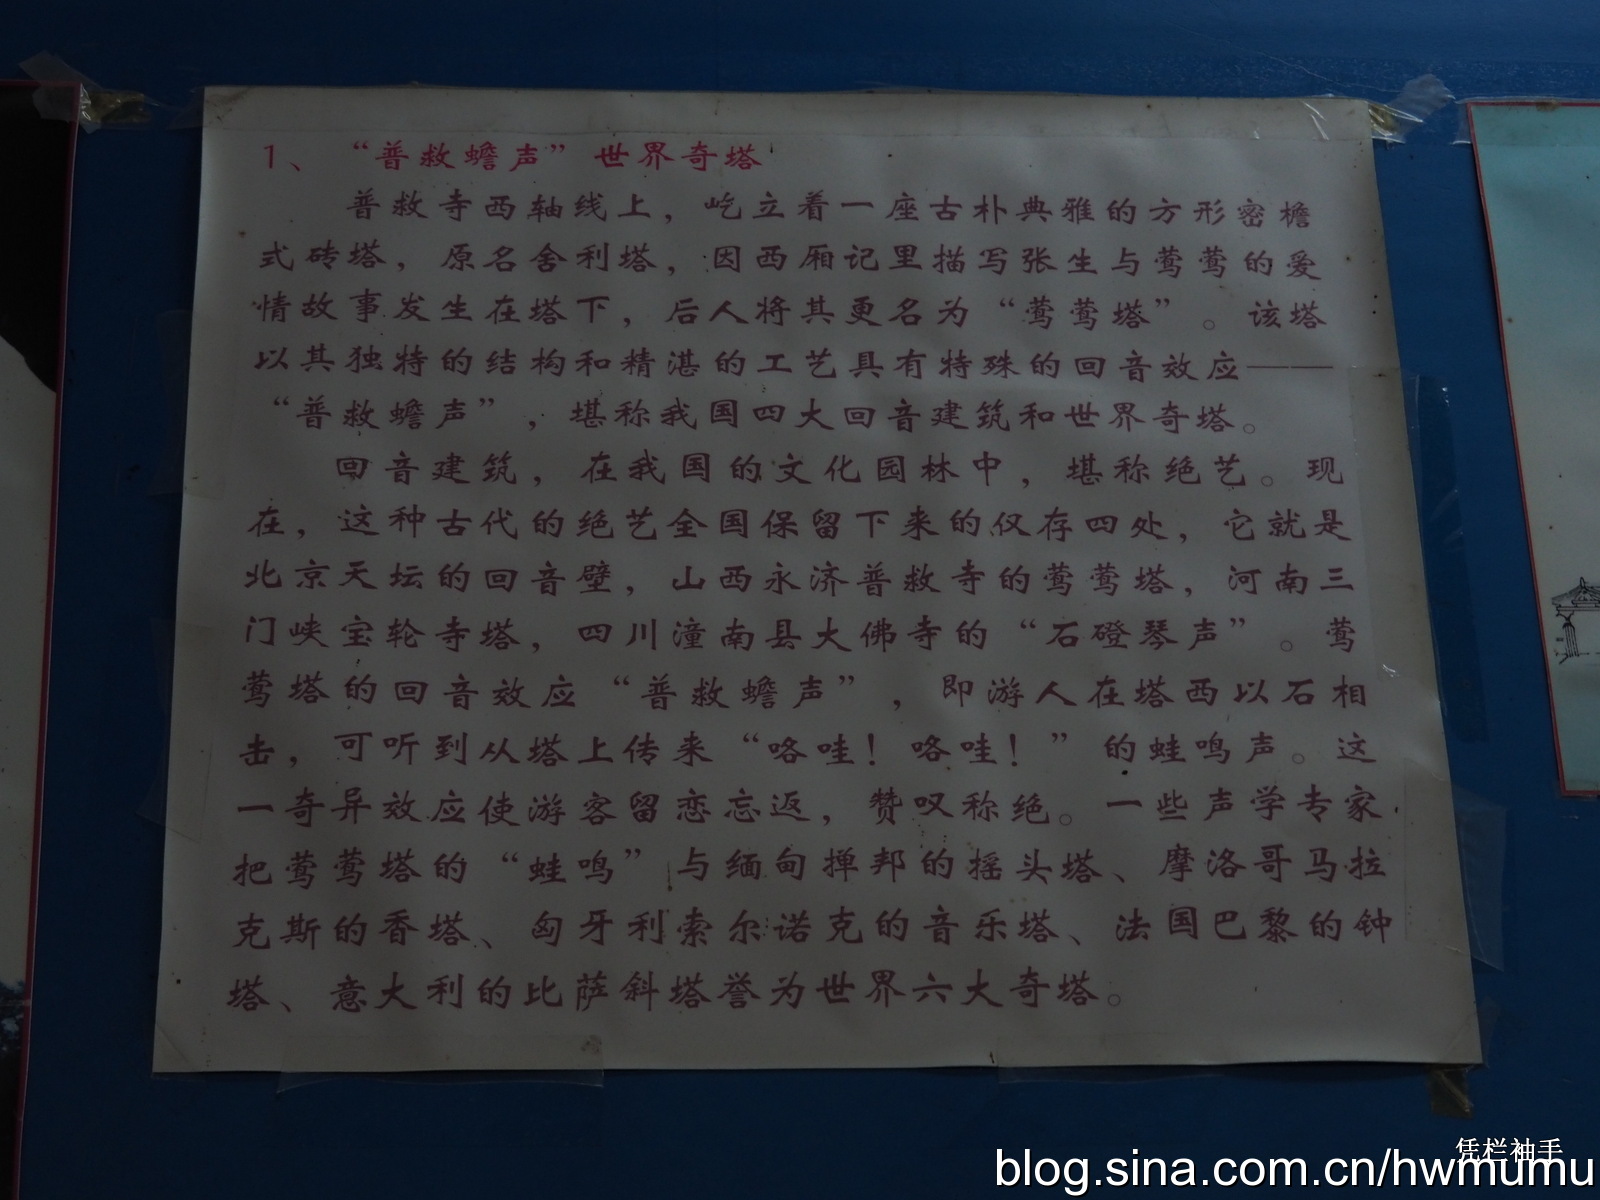 1、“普救蟾声”世界奇塔
普救寺西轴线上，屹立着一座古朴典雅的方形密檐
式砖塔，原名舍利塔，因西厢记里描写张生与莺莺的爱
情故事发生在塔下，后人将其更名为“莺莺塔”。该塔
以其独特的结构和精湛的工艺具有特殊的回音效应——
“普救蟾声”，堪称我国四大回音建筑和世界奇塔。
回音建筑，在我国的文化园林中，堪称绝艺。现
在，这种古代的绝艺全国保留下来的仅存四处，它就是
北京天坛的回音壁，山西永济普救寺的莺莺塔，河南三
门峡宝轮寺塔，四川潼南县大佛寺的“石磴琴声”。莺
莺塔的回音效应“普救蟾声”，即游人在塔西以石相
击，可听到从塔上传来“咯哇！咯哇！”的蛙鸣声。这
一奇异效应使游客留恋忘返，赞叹称绝。一些声学专家
把莺莺塔的“蛙鸣”与缅甸掸邦的摇头塔、摩洛哥马拉
克斯的香塔、匈牙利索尔诺克的音乐塔、法国巴黎的钟
塔、意大利的比萨斜塔誉为世界六大奇塔。
凭栏袖手
blog.sina.com.cn/hwmumu